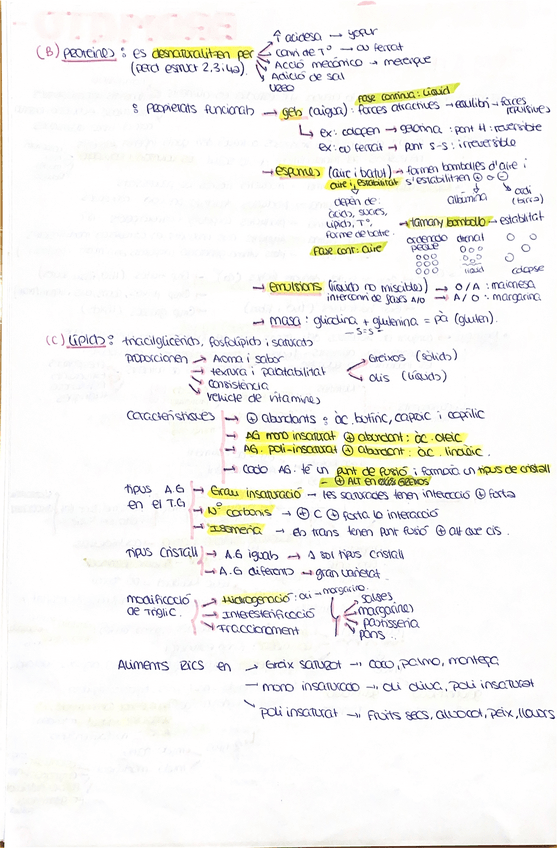 (B) PROTEÏNES : es desnaturalitzen per
(perd estruct 2,3 i 4a)
↑ acidesa → yogur
Canvi de Tº → ou ferrat
Acció mecànica → merengue
Adició de sal
: Propietats funcionals → gels (aigua) : forces atractives → equilibri → forces repulsives
Fase contínua : líquid
↳ ex: colagen → gelatina : pont H : reversible
ex: ou ferrat → pont S-S : irreversible
→ espumes (aire i batut) → formen bombolles d'aire i
aire i estabilitat s'estabilitzen ⊕ o ⊖
albúmina
depèn de:
àcids, sucres,
lípids, Tº,
forma de batre.
→ tamany bombolla → estabilitat
Fase cont: aire
líquid
colapse
→ emulsions (líquids no miscibles) → O/A : maionesa
intercanvi de fases A/O → A/O : margarina
→ masa : gliadina + glutenina = pà (gluten).
-S=S-
(C) Lípids : triacilglicèrids, fosfolípids i
proporcionen → Aroma i sabor
→ textura i palatabilitat
→ consistència
→ vehicle de vitamines
Greixos (sòlids)
olis (líquids)
Característiques → ⊕ abundants : àc. butíric, caproic i caprílic
→ AG mono insaturat ⊕ abundant : àc. oleic
→ AG. poli-insaturat ⊕ abundant : àc. linoleic.
→ Cada AG. té un punt de fusió i formarà un tipus de cristall
tipus A.G → Grau insaturació → les saturades tenen interacció ⊕ forta
en el T.G → Nº carbonis → ⊕ C ⊕ forta la interacció
→ Isomeria → els trans tenen punt fusió ⊕ alt que cis.
tipus cristall → A.G iguals → 1 sol tipus cristall
→ A.G diferents → gran varietat.
modificació → Hidrogenació : oli → margarina
de Triglic. → Interesterificació
→ Fraccionament
salses
margarines
pastisseria
pans...
Aliments rics en → Greix saturat → coco, palma, manteca
→ mono insaturado → oli oliva, poli insaturat
→ poli insaturat → Fruits secs, alvocat, peix, llavors